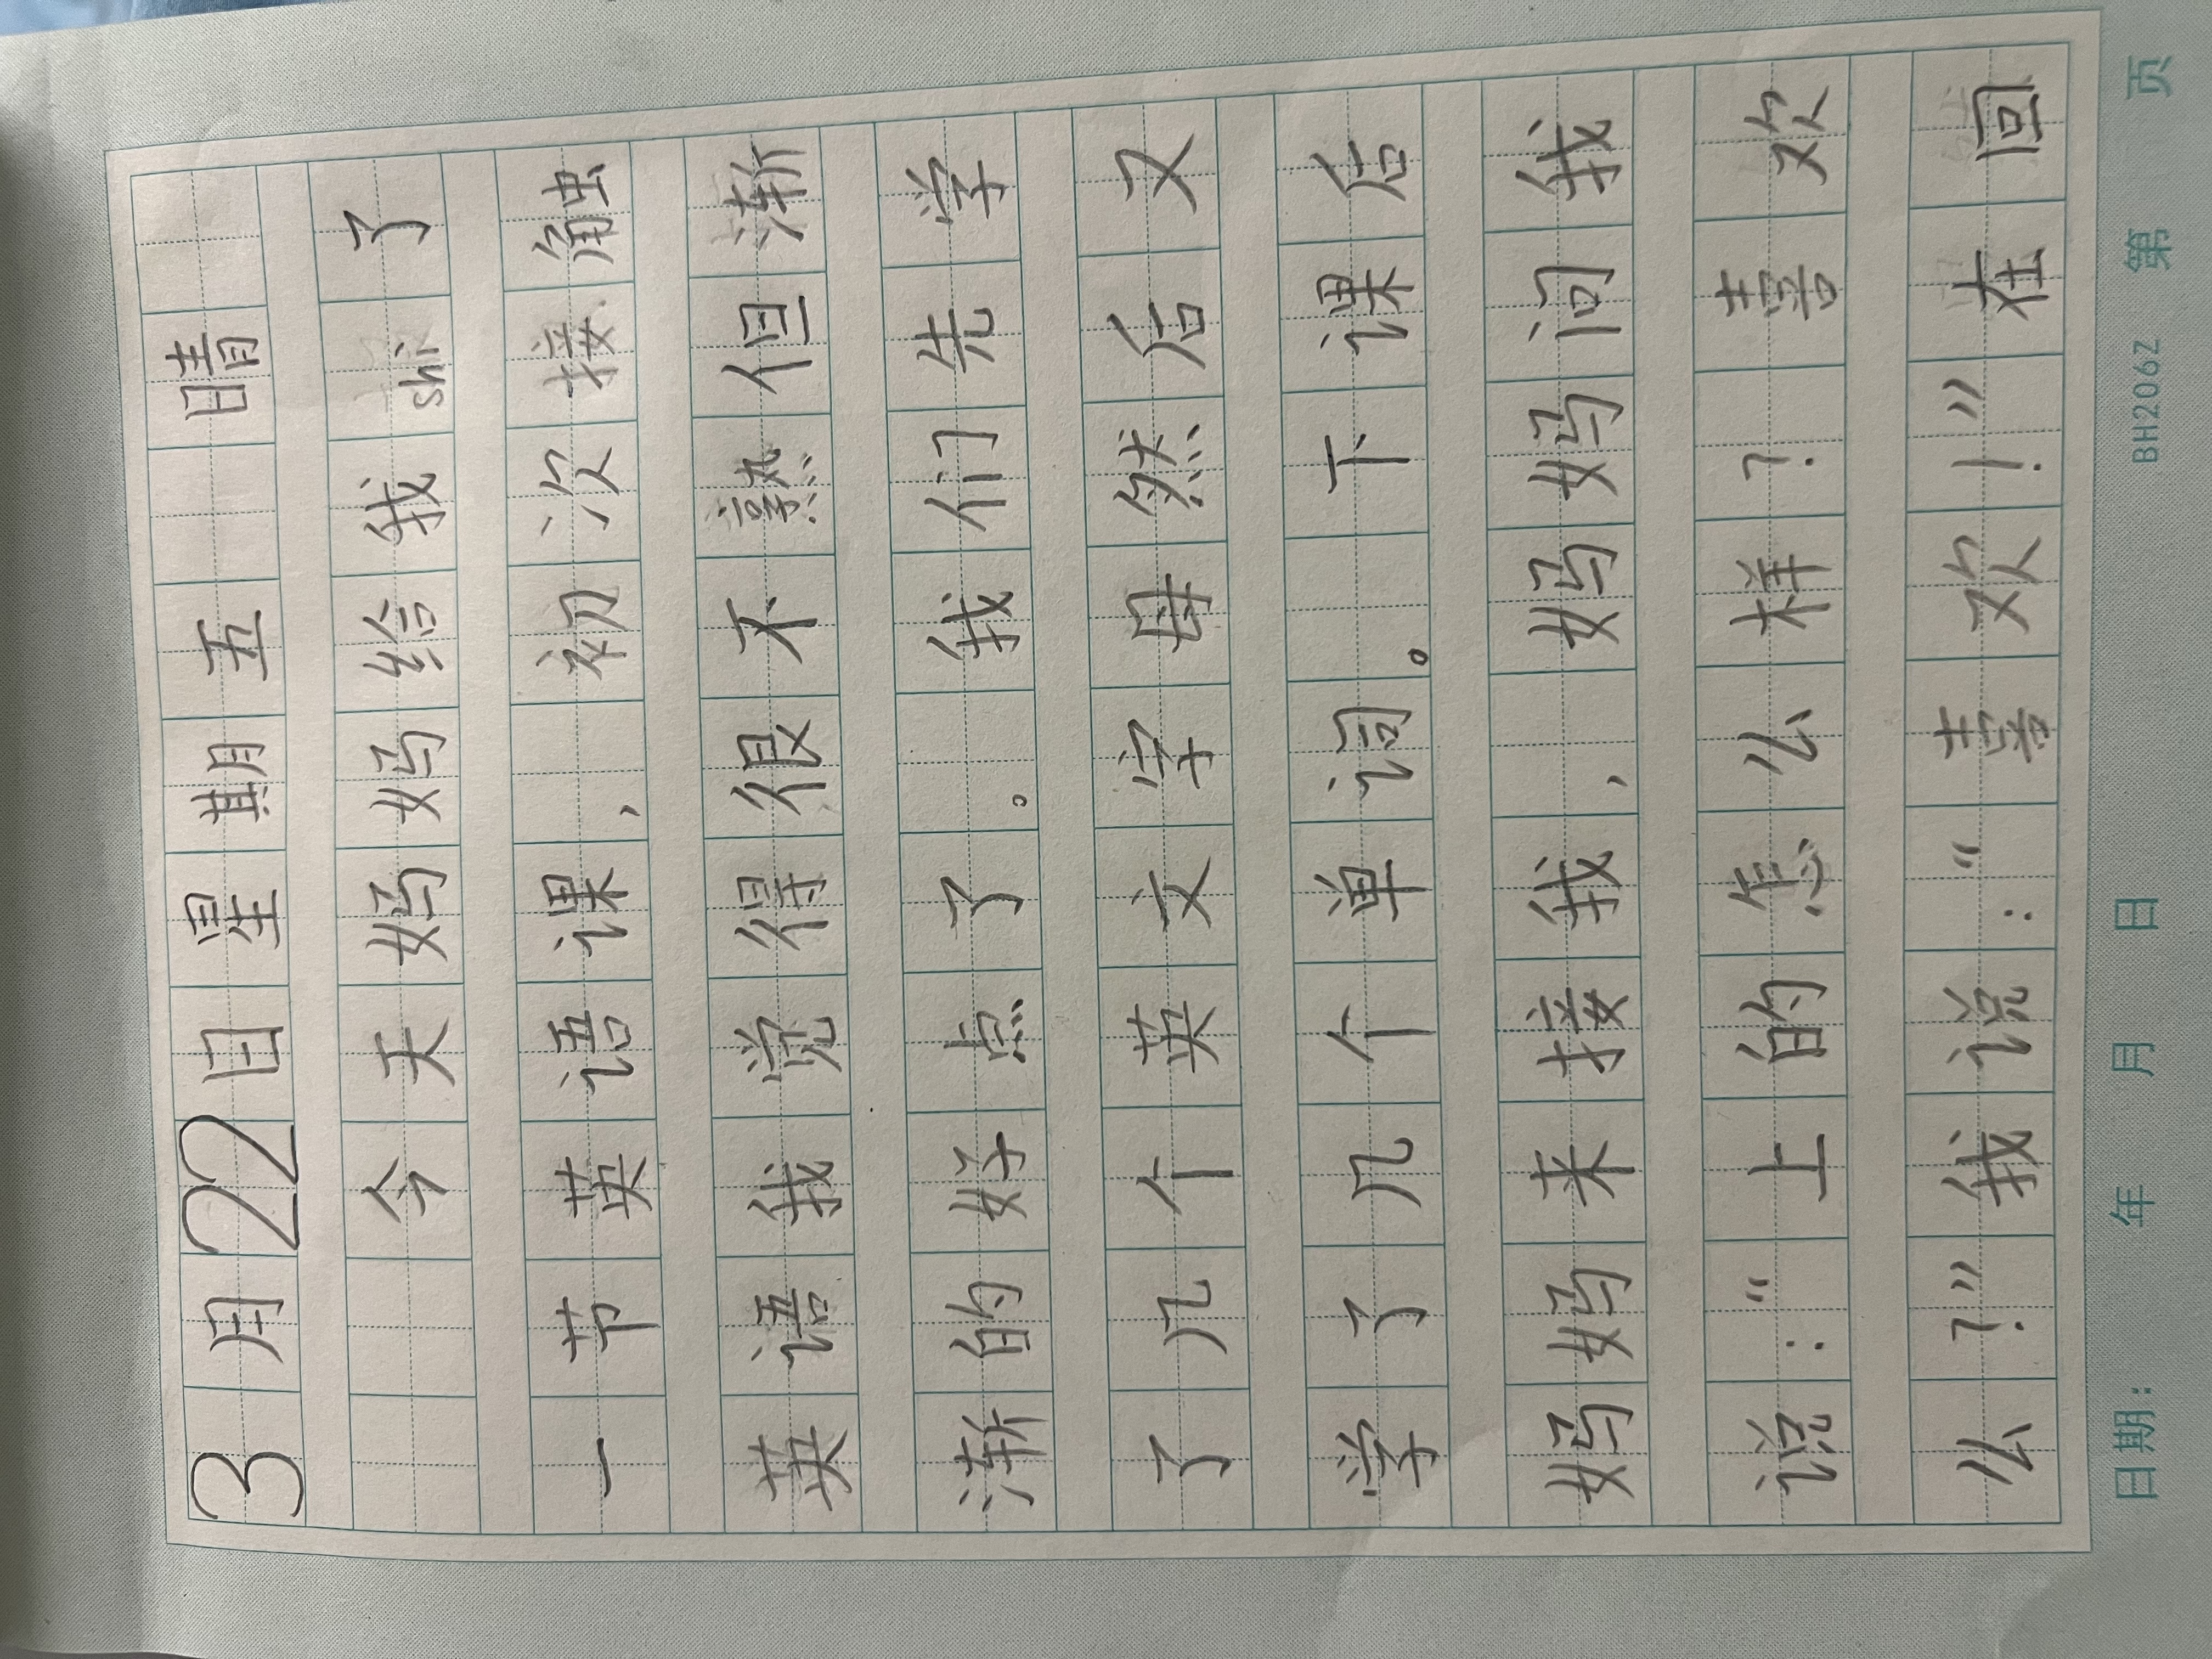 3月22日星期五 晴
今天妈妈给我shi了
一节英语课，初次接触
英语我觉得很不熟但渐
渐的好点了。我们先学
了几个英文字母然后又
学了几个单词。下课后
妈妈来接我，妈妈问我
说：“上的怎么样？喜欢
么？”我说：“喜欢！”在回
日期： 年 月 日 BH206Z 第 页